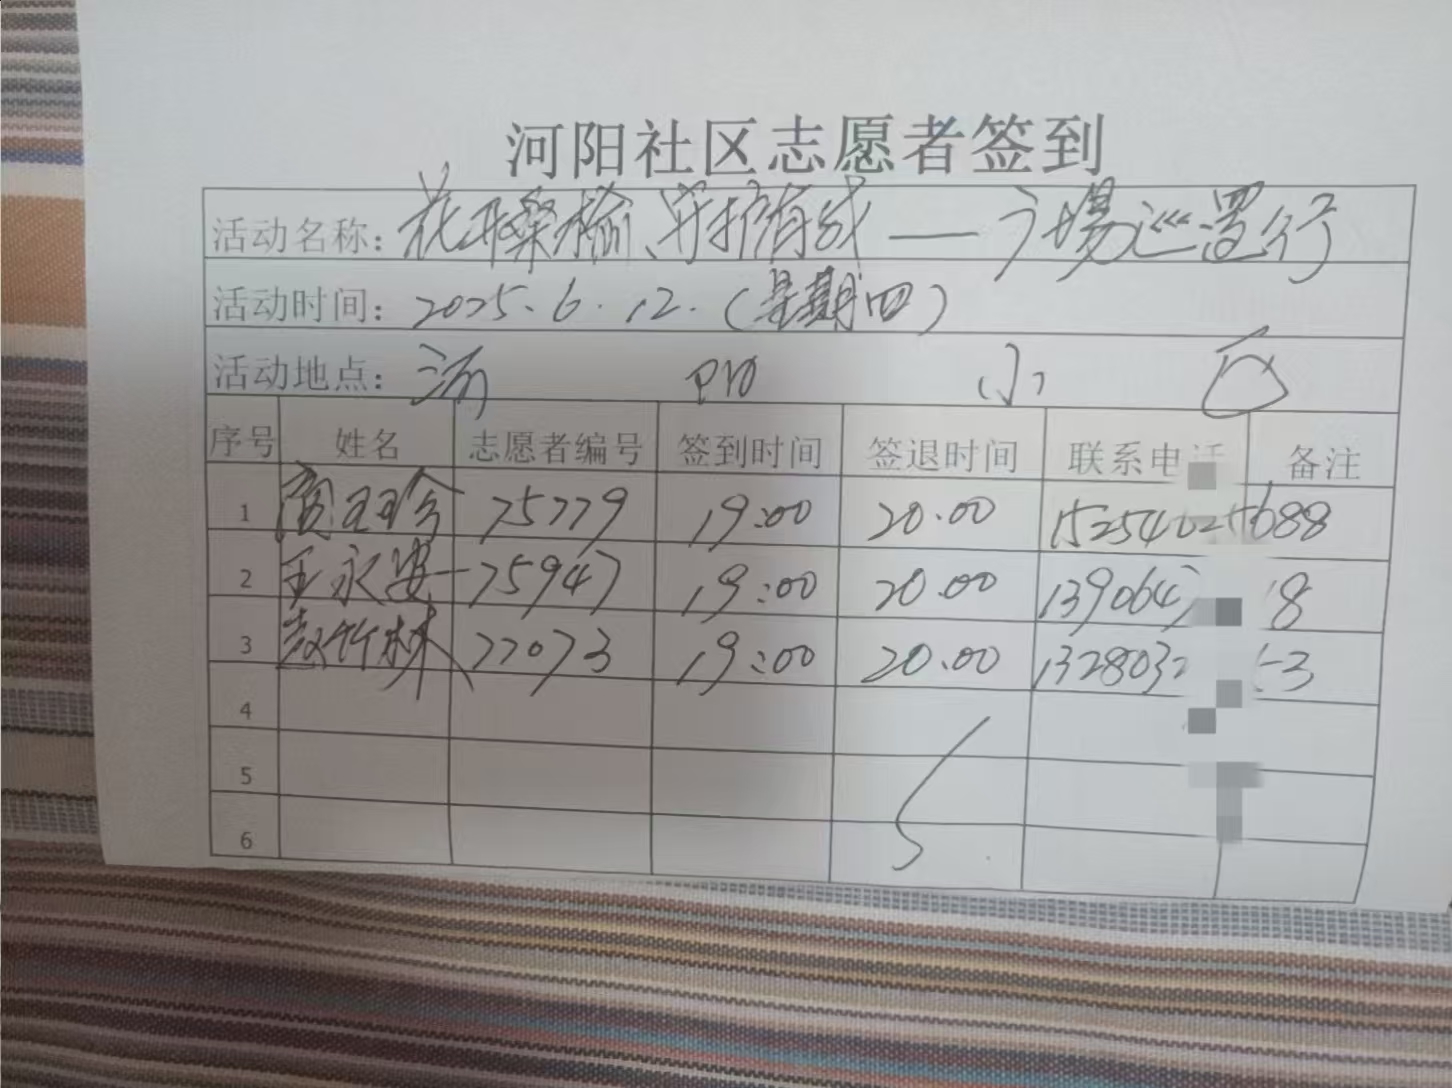 河阳社区志愿者签到
活动名称: 花开桑榆、守护有我——广场巡逻行
活动时间: 2025.6.12.(星期四)
活动地点: 河 阳 小 区
序号 姓名 志愿者编号 签到时间 签退时间 联系电话 备注
1 75779 19:00 20.00
2 王永安 75947 19:00 20.00 139064 8
3 赵竹林 77073 19:00 20.00 1328032 3
4
5
6